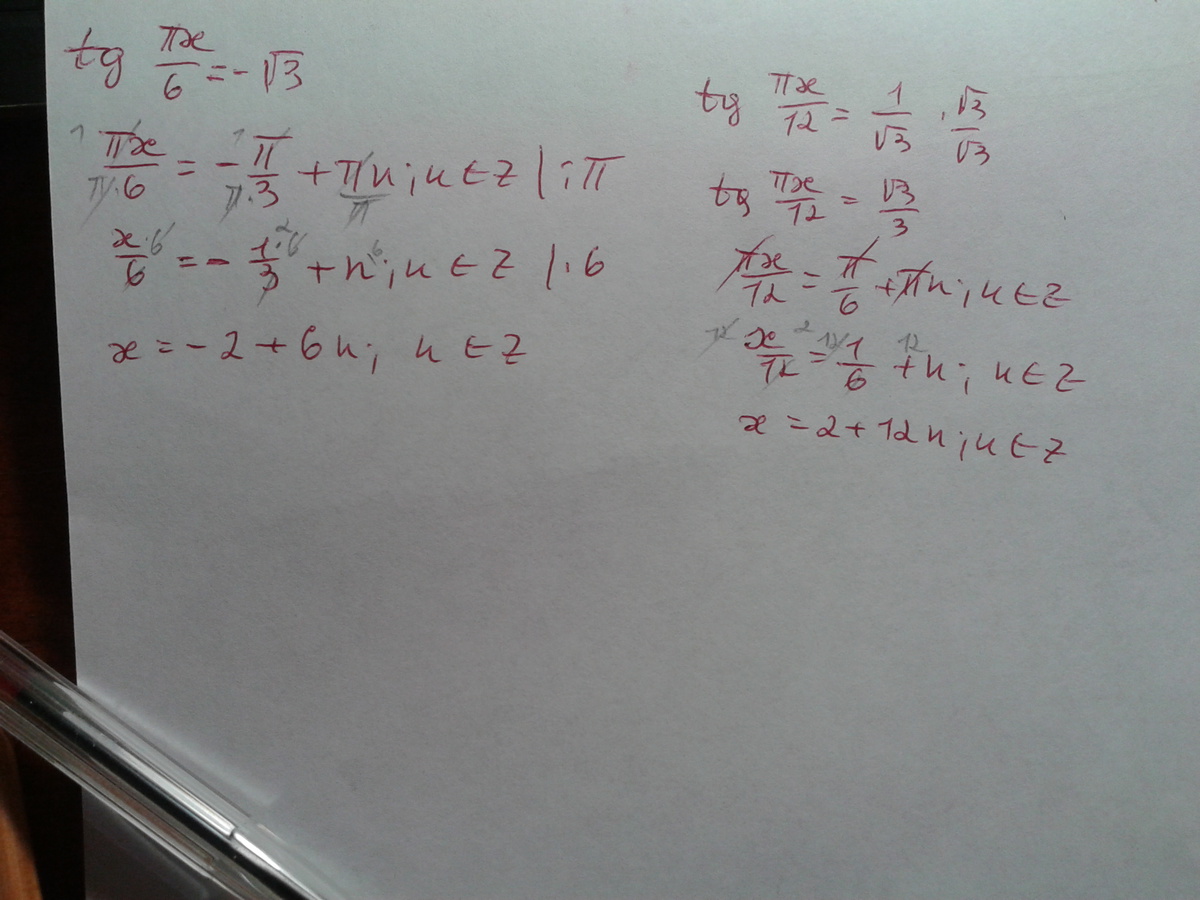 tg πx/6 = -√3
πx/6 = -π/3 + πn; n ∈ Z | : π
x/6 = -1/3 + n; n ∈ Z | · 6
x = -2 + 6n; n ∈ Z
tg πx/12 = 1/√3 · √3/√3
tg πx/12 = √3/3
πx/12 = π/6 + πn; n ∈ Z
x/12 = 1/6 + n; n ∈ Z
x = 2 + 12n; n ∈ Z